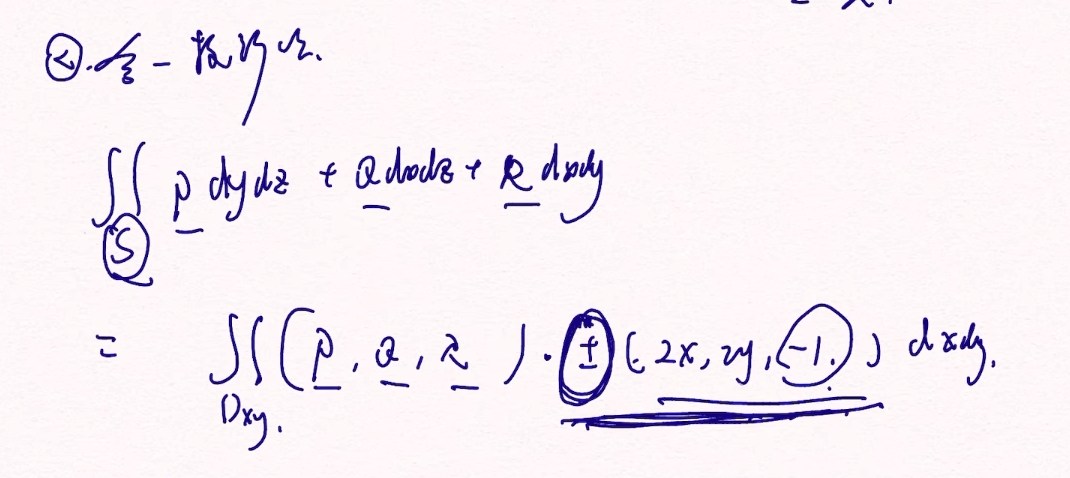 ②.合一投影法.
∬ P dydz + Q dxdz + R dxdy
S
= ∬ (P, Q, R) · ± (2x, 2y, -1.) dxdy.
Dxy.